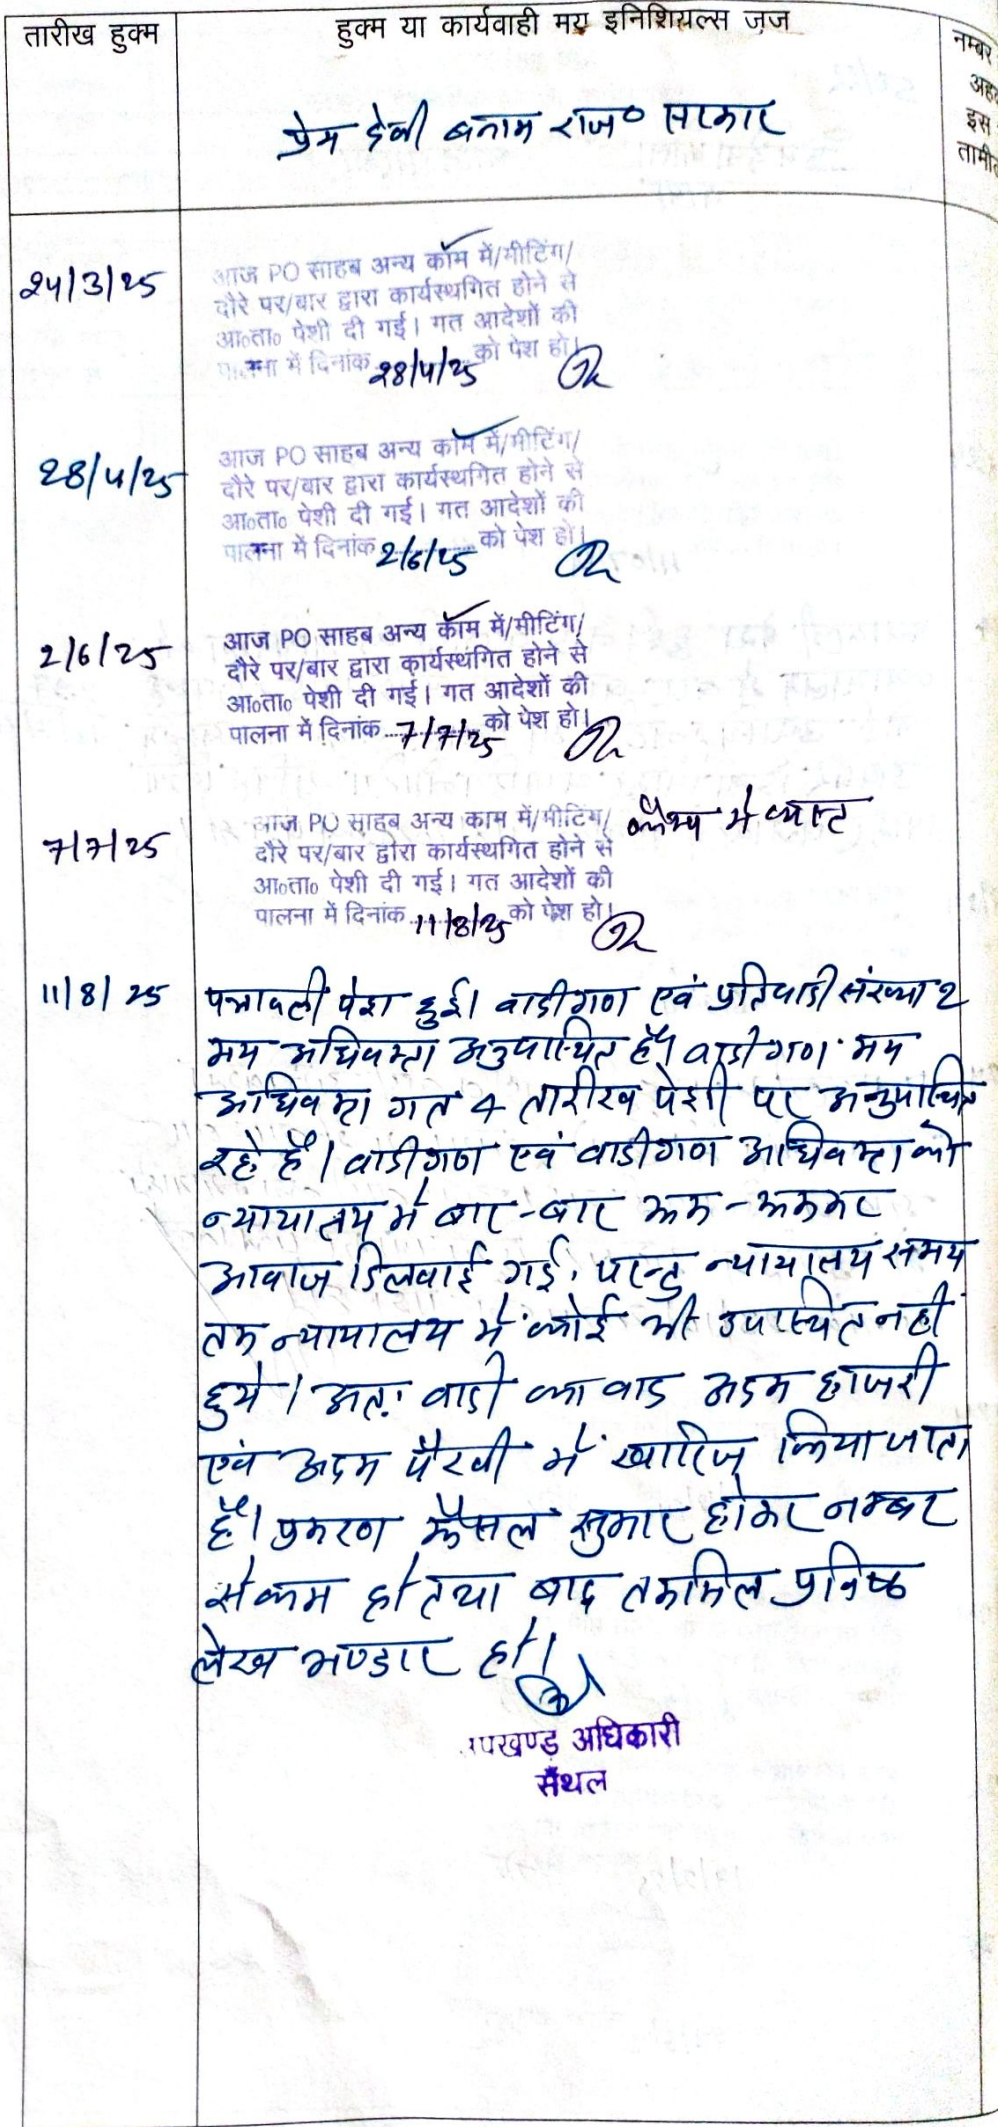 तारीख हुक्म
हुक्म या कार्यवाही मय इनिशियल्स जज
नम्बर
अह
इस
तामी
प्रेम देवी बनाम राज० सरकार
24/3/25
आज PO साहब अन्य काम में/मीटिंग/
दौरे पर/बार द्वारा कार्यस्थगित होने से
आ०ता० पेशी दी गई। गत आदेशों की
पालना में दिनांक 28/4/25 को पेश हो।
28/4/25
आज PO साहब अन्य काम में/मीटिंग/
दौरे पर/बार द्वारा कार्यस्थगित होने से
आ०ता० पेशी दी गई। गत आदेशों की
पालना में दिनांक 2/6/25 को पेश हो।
2/6/25
आज PO साहब अन्य काम में/मीटिंग/
दौरे पर/बार द्वारा कार्यस्थगित होने से
आ०ता० पेशी दी गई। गत आदेशों की
पालना में दिनांक 7/7/25 को पेश हो।
7/7/25
आज PO साहब अन्य काम में/मीटिंग/ कैम्प में व्यस्त
दौरे पर/बार द्वारा कार्यस्थगित होने से
आ०ता० पेशी दी गई। गत आदेशों की
पालना में दिनांक 11/8/25 को पेश हो।
11/8/25
पत्रावली पेश हुई। वादीगण एवं प्रतिवादी संख्या 2
मय अधिवक्ता अनुपस्थित है। वादीगण मय
अधिवक्ता गत 4 तारीख पेशी पर अनुपस्थित
रहे है। वादीगण एवं वादीगण अधिवक्ता को
न्यायालय मे बार-बार रूक-रूककर
आवाज दिलवाई गई, परन्तु न्यायालय समय
तक न्यायालय मे कोई भी उपस्थित नही
हुये। अतः वादी का वाद अदम हाजरी
एवं अदम पैरवी में खारिज किया जाता
है। प्रकरण फैसल सुमार होकर नम्बर
से कम हो तथा बाद तकमिल प्रविष्ठ
लेख भण्डार हो।
उपखण्ड अधिकारी
सैंथल